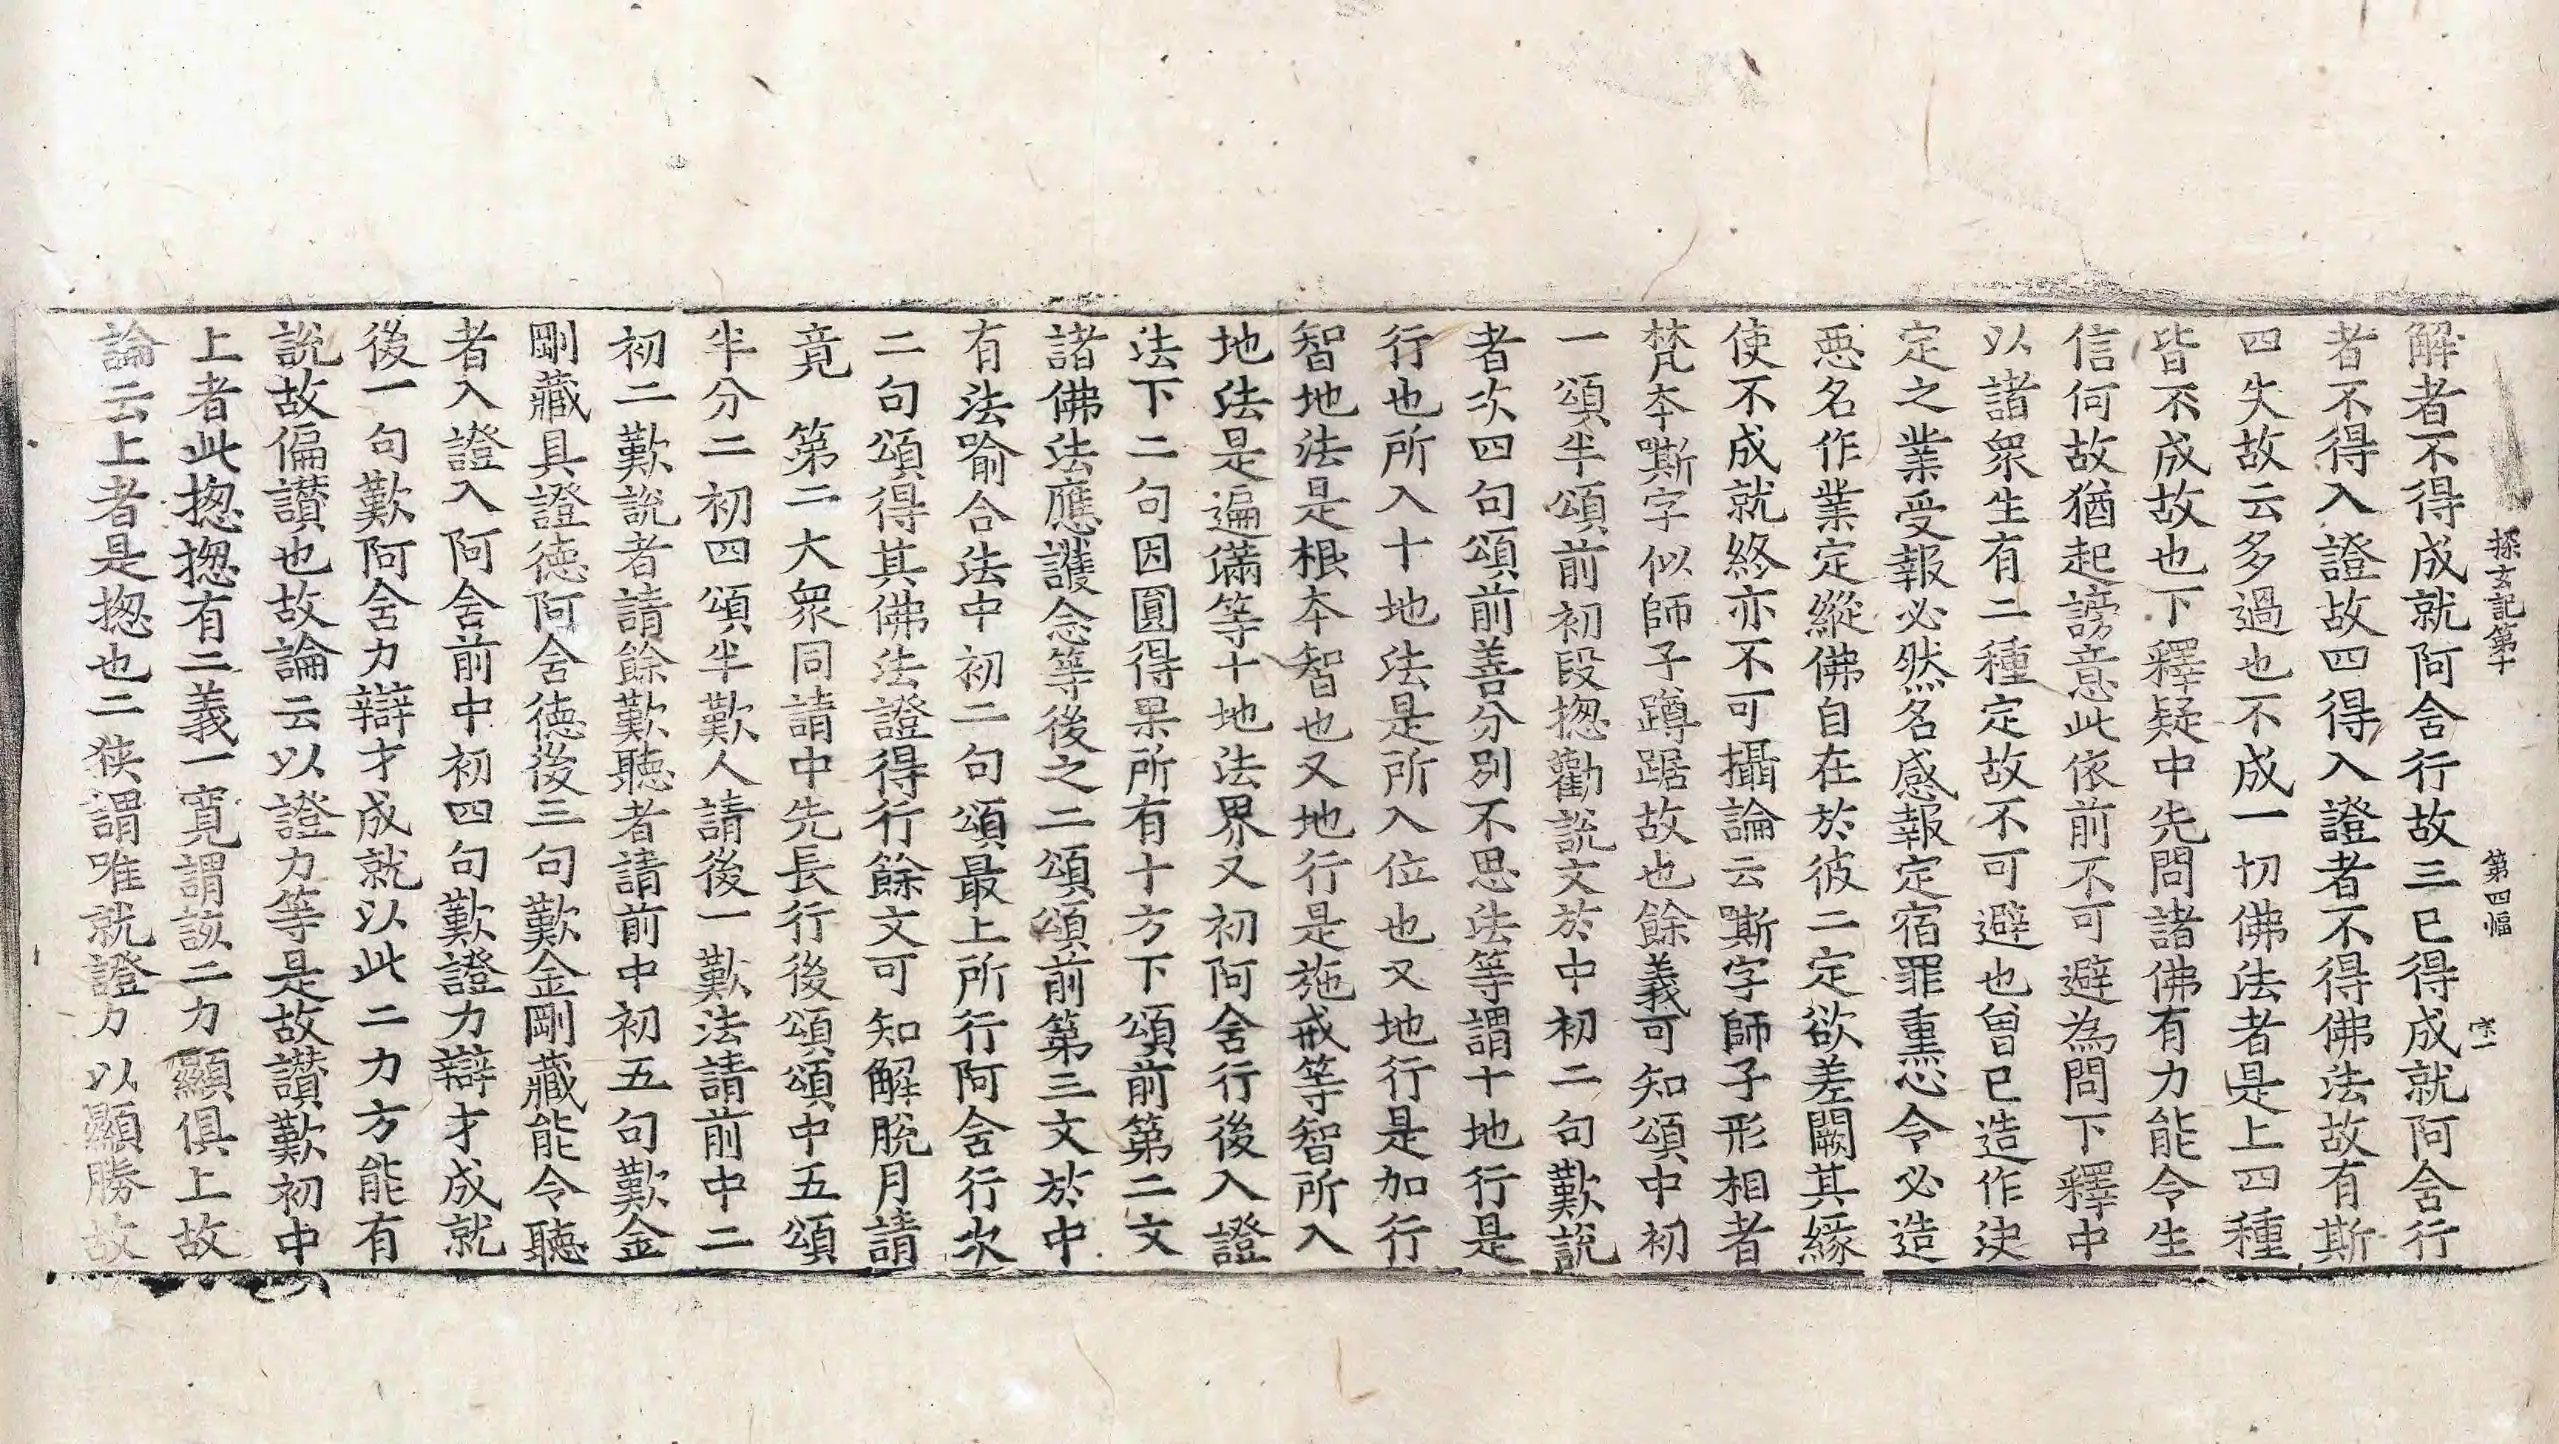 探玄記第十　第四幅　宗一
解者不得成就阿舍行故三已得成就阿舍行
者不得入證故四得入證者不得佛法故有斯
四失故云多過也不成一切佛法者是上四種
皆不成故也下釋疑中先問諸佛有力能令生
信何故猶起謗意此依前不可避為問下釋中
以諸衆生有二種定故不可避也曾已造作決
定之業受報必然名感報定宿罪熏心令必造
惡名作業定縱佛自在於彼二定欲差闕其緣
使不成就終亦不可攝論云嘶字師子形相者
梵本嘶字似師子蹲踞故也餘義可知頌中初
一頌半頌前初段揔勸說文於中初二句歎說
者次四句頌前善分別不思法等謂十地行是
行也所入十地法是所入位也又地行是加行
智地法是根本智也又地行是施戒等智所入
地法是遍滿等十地法界又初阿舍行後入證
法下二句因圓得果所有十方下頌前第二文
諸佛法應護念等後之二頌頌前第三文於中
有法喻合法中初二句頌最上所行阿舍行次
二句頌得其佛法證得行餘文可知解脫月請
竟　第二大衆同請中先長行後頌頌中五頌
半分二初四頌半歎人請後一歎法請前中二
初二歎說者請餘歎聽者請前中初五句歎金
剛藏具證德阿舍德後三句歎金剛藏能令聽
者入證入阿舍前中初四句歎證力辯才成就
後一句歎阿舍力辯才成就以此二力方能有
說故偏讃也故論云以證力等是故讃歎初中
上者此揔揔有二義一寬謂該二力顯俱上故
論云上者是揔也二狹謂唯就證力以顯勝故